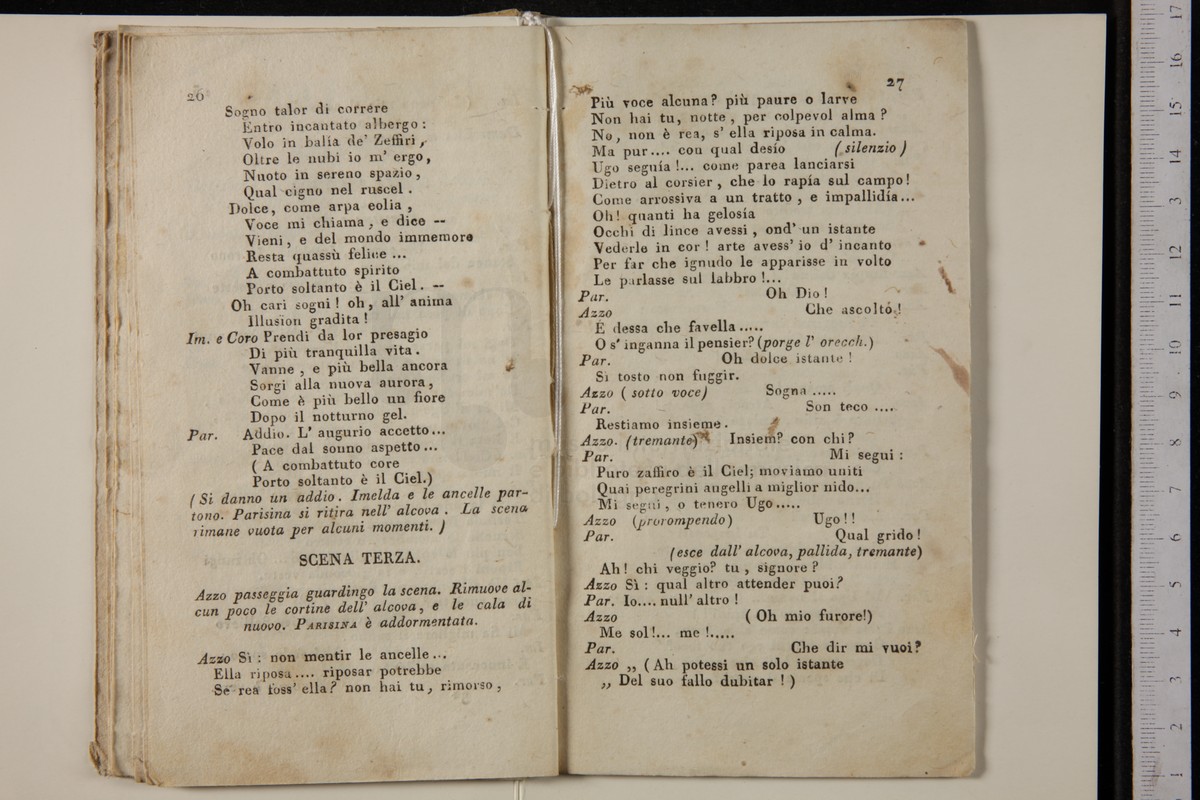 26
Sogno talor di correre
Entro incantato albergo :
Volo in balía de' Zeffiri ,
Oltre le nubi io m' ergo,
Nuoto in sereno spazio ,
Qual cigno nel ruscel .
Dolce, come arpa eolia ,
Voce mi chiama, e dice --
Vieni , e del mondo immemore
Resta quassù felice ...
A combattuto spirito
Porto soltanto è il Ciel. --
Oh cari sogni ! oh, all' anima
Illusion gradita !
Im. e Coro Prendi da lor presagio
Di più tranquilla vita .
Vanne , e più bella ancora
Sorgi alla nuova aurora,
Come è più bello un fiore
Dopo il notturno gel.
Par. Addio. L' augurio accetto...
Pace dal sonno aspetto ...
( A combattuto core
Porto soltanto è il Ciel.)
( Si danno un addio . Imelda e le ancelle par-
tono. Parisina si ritira nell' alcova . La scena
rimane vuota per alcuni momenti. )
SCENA TERZA.
Azzo passeggia guardingo la scena. Rimuove al-
cun poco le cortine dell' alcova , e le cala di
nuovo. PARISINA è addormentata.
Azzo Sì : non mentir le ancelle ...
Ella riposa .... riposar potrebbe
Se rea foss' ella ? non hai tu, rimorso ,
27
Più voce alcuna ? più paure o larve
Non hai tu, notte , per colpevol alma ?
No, non è rea, s' ella riposa in calma.
Ma pur.... con qual desío ( silenzio )
Ugo seguía !... come parea lanciarsi
Dietro al corsier , che lo rapía sul campo !
Come arrossiva a un tratto , e impallidía...
Oh ! quanti ha gelosía
Occhi di lince avessi , ond' un istante
Vederle in cor ! arte avess' io d' incanto
Per far che ignudo le apparisse in volto
Le parlasse sul labbro !...
Par. Oh Dio !
Azzo Che ascolto !
È dessa che favella .....
O s' inganna il pensier? (porge l' orecch.)
Par. Oh dolce istante !
Sì tosto non fuggir.
Azzo ( sotto voce) Sogna .....
Par. Son teco ....
Restiamo insieme .
Azzo. (tremante) Insiem? con chi ?
Par. Mi segui :
Puro zaffiro è il Ciel; moviamo uniti
Quai peregrini augelli a miglior nido...
Mi segui , o tenero Ugo.....
Azzo (prorompendo) Ugo ! !
Par. Qual grido !
(esce dall' alcova, pallida, tremante)
Ah ! chi veggio? tu , signore ?
Azzo Sì : qual altro attender puoi?
Par. Io.... null' altro !
Azzo ( Oh mio furore!)
Me sol !... me !.....
Par. Che dir mi vuoi?
Azzo ,, ( Ah potessi un solo istante
,, Del suo fallo dubitar ! )
17
16
15
14
13
12
11
10
9
8
7
6
5
4
3
2
1